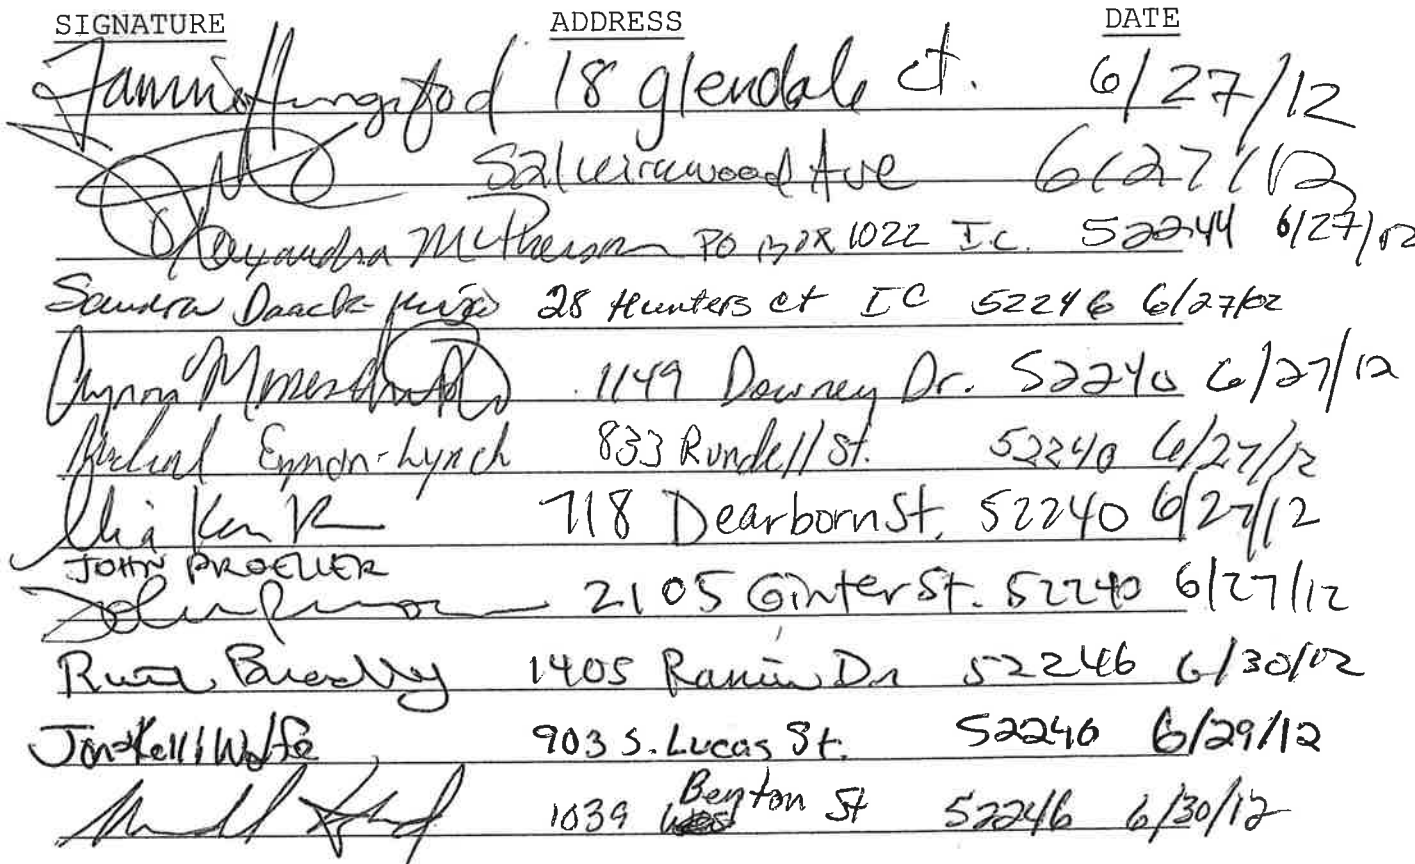 SIGNATURE ADDRESS DATE
18 glendale ct. 6/27/12
Ave 6/27/12
Alexandra McPherson PO BOX 1022 I.C. 52244 6/27/12
Sandra Daack- 28 Hunters ct IC 52246 6/27/02
1149 Downey Dr. 52240 6/27/12
Michael Eynon-Lynch 833 Rundell St. 52240 6/27/12
718 Dearborn St. 52240 6/27/12
JOHN PROELLER
2105 Ginter St. 52240 6/27/12
Bradley 1405 Dr 52246 6/30/12
Jon & Kelli Wolfe 903 S. Lucas St. 52240 6/29/12
1039 Benton St 52246 6/30/12